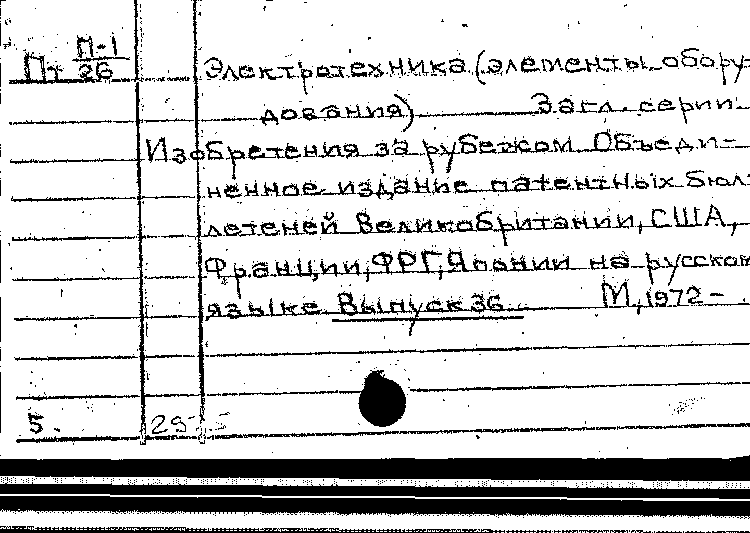 Пт П-1
26
Электротехника (элементы обору-
дования) Загл. серии
Изобретения за рубежом. Объеди-
ненное издание патентных бюл-
летеней Великобритании, США,
Франции, ФРГ, Японии на русском
языке. Выпуск 36. М, 1972 - .
5.